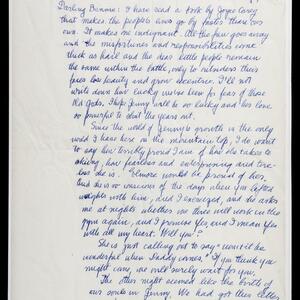 Darling Bonnie: I have read a book by Joyce Carey
that makes the people's lives go by faster than our
own. It makes me indignant. All the fun goes away
and the misfortunes and responsibilities come
thick as hail and the dear little people remain
the same within the battle, only to
lose beauty and grow eccentric. I'll not
write down how lucky we've been for fear of those
old gods. I hope Jenny will be so lucky and her love
so powerful to shut the years out.
Since the world of Jenny's growth is the only
world I have here on the mountain top, I do want
to say how terribly proud I am of how she takes to
skiing, how fearless and enterprising and
she is. Elmore would be proud of her.
And she is so conscious of the days when you lifted
weights with him, and I exercised, and she asks
me at nights whether we three will work in the
gym again, and I promise Yes, and I mean Yes
with all my heart. Will you?
She is just calling out to say "won't it be
wonderful when Daddy comes." If you think you
might come, we will surely wait for you.
The other night seemed like the birth
of our souls in Jenny. We had got their